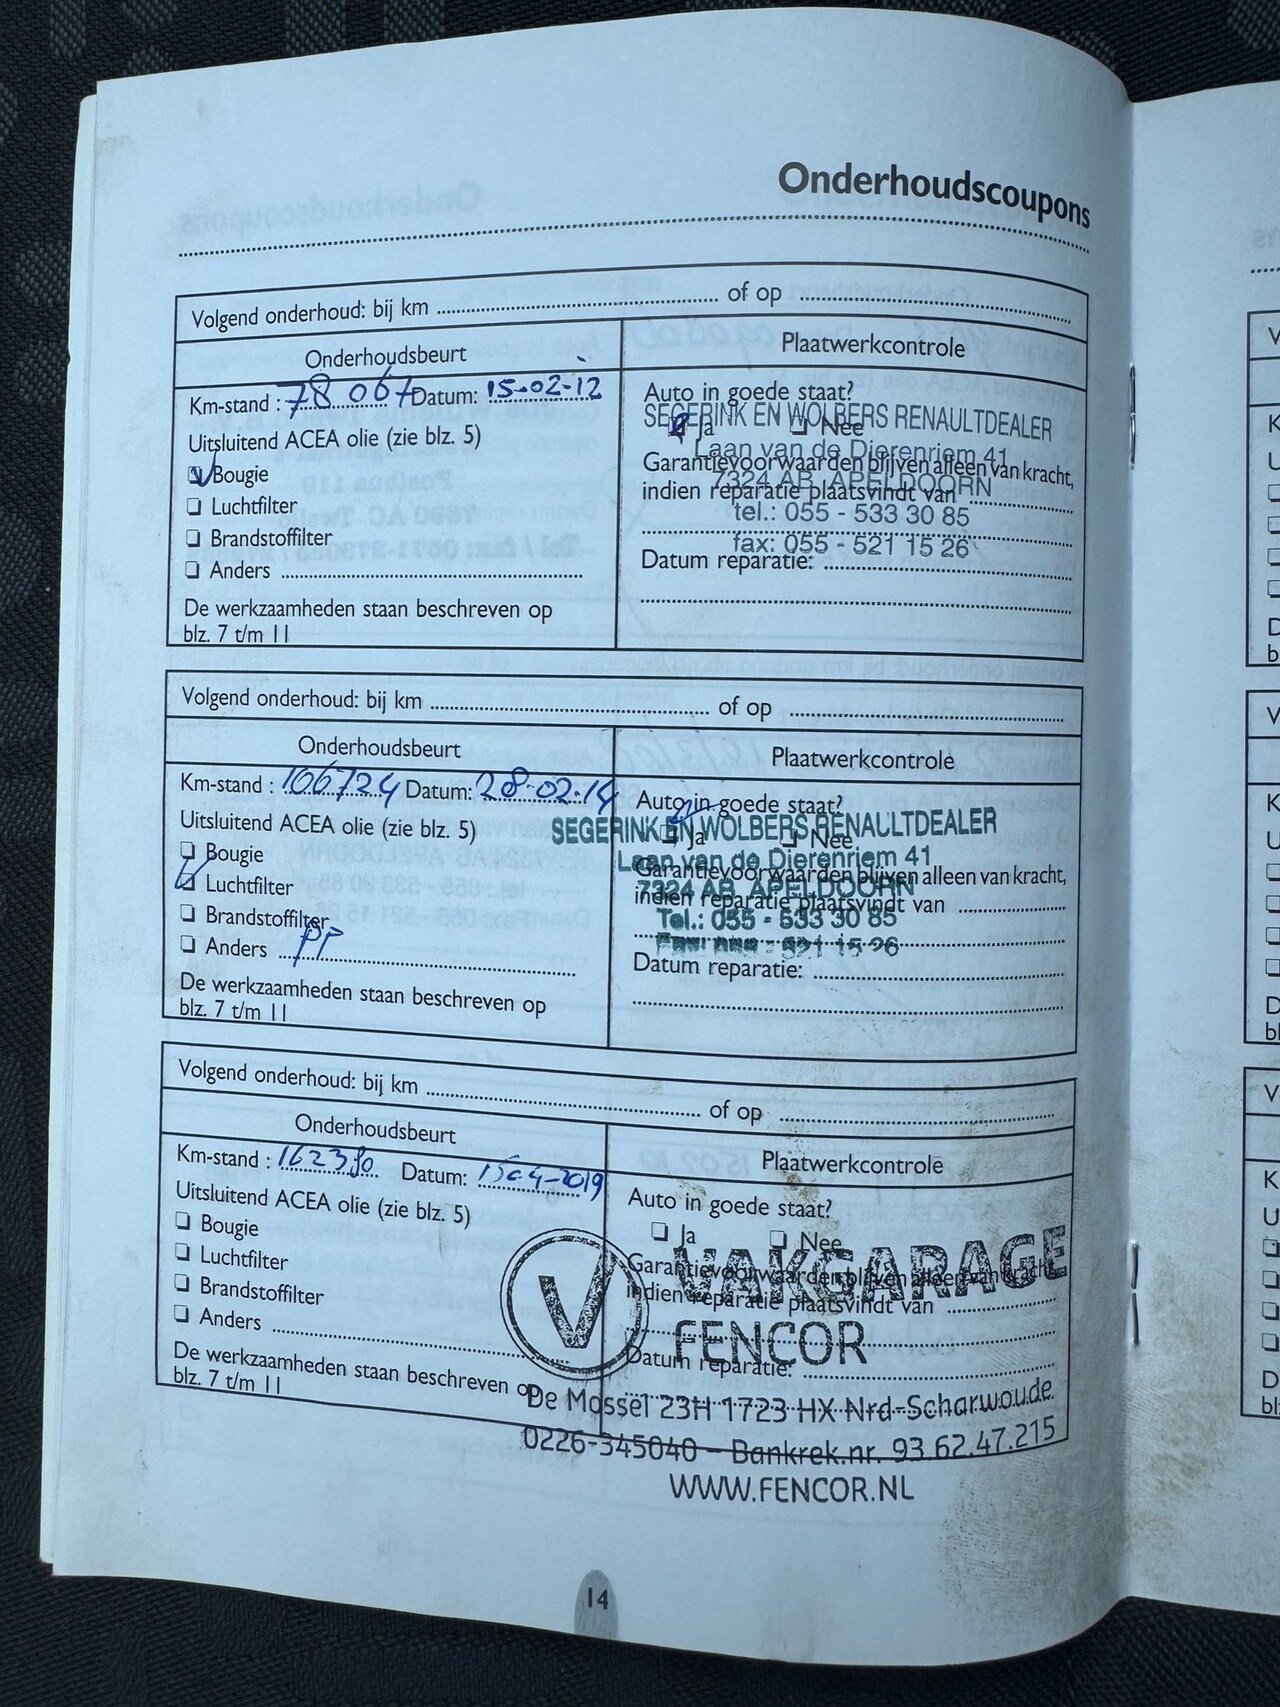 Onderhoudscoupons
Volgend onderhoud: bij km of op
Onderhoudsbeurt
Plaatwerkcontrole
Km-stand : 78 067 Datum: 15-02-12
Auto in goede staat?
SEGERINK EN WOLBERS RENAULTDEALER
Ja Nee
Uitsluitend ACEA olie (zie blz. 5)
Laan van de Dierenriem 41
Bougie
Garantievoorwaarden blijven alleen van kracht,
7324 AB APELDOORN
indien reparatie plaatsvindt van
Luchtfilter
tel.: 055 - 533 30 85
Brandstoffilter
fax: 055 - 521 15 26
Datum reparatie:
Anders
De werkzaamheden staan beschreven op
blz. 7 t/m 11
Volgend onderhoud: bij km of op
Onderhoudsbeurt
Plaatwerkcontrole
Km-stand : 106724 Datum: 28-02-14
Auto in goede staat?
Uitsluitend ACEA olie (zie blz. 5)
SEGERINK EN WOLBERS RENAULTDEALER
Ja Nee
Bougie
Laan van de Dierenriem 41
Garantievoorwaarden blijven alleen van kracht,
Luchtfilter
7324 AB APELDOORN
indien reparatie plaatsvindt van
Brandstoffilter
Tel.: 055 - 533 30 85
Anders PP
Fax: 055 - 521 15 26
Datum reparatie:
De werkzaamheden staan beschreven op
blz. 7 t/m 11
Volgend onderhoud: bij km of op
Onderhoudsbeurt
Plaatwerkcontrole
Km-stand : Datum:
Auto in goede staat?
Uitsluitend ACEA olie (zie blz. 5)
Ja Nee
Bougie
V VAKGARAGE
Garantievoorwaarden blijven alleen van kracht,
Luchtfilter
indien reparatie plaatsvindt van
Brandstoffilter
FENCOR
Anders
Datum reparatie:
De werkzaamheden staan beschreven op
blz. 7 t/m 11
De Mossel 23H 1723 HX Nrd-Scharwoude
0226-345040 - Bankrek.nr. 93.62.47.215
WWW.FENCOR.NL
14